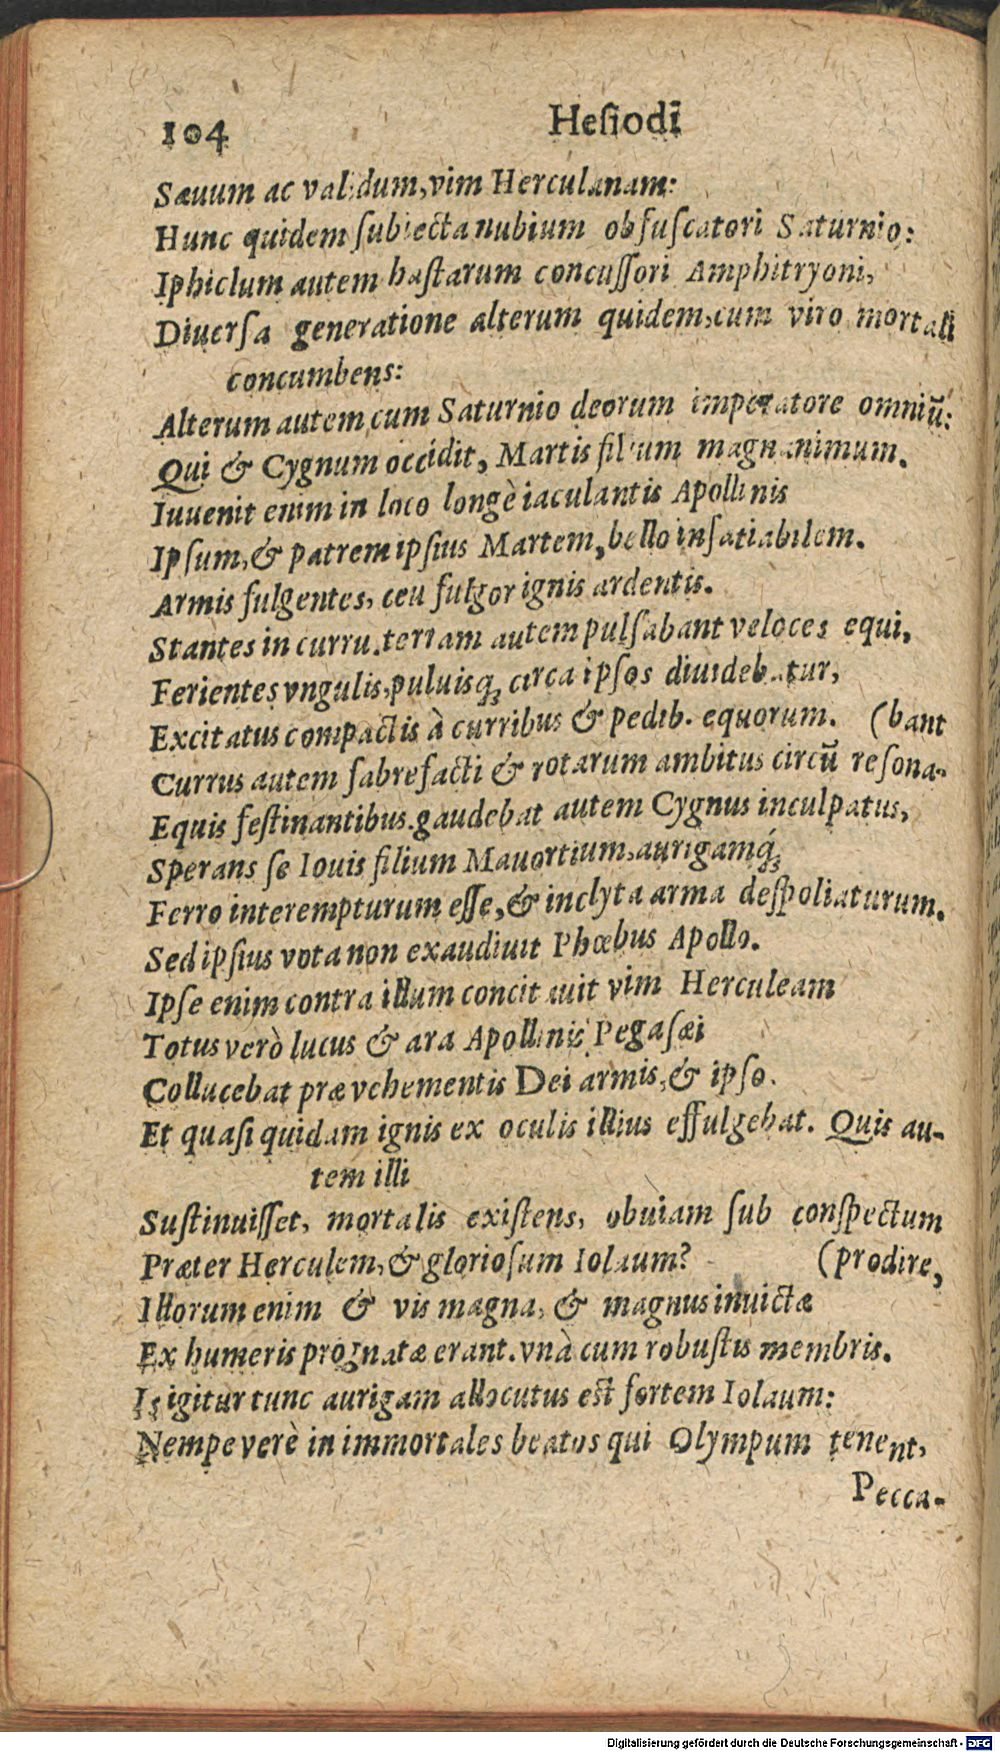 104 Heſiodi
Sæuum ac validum, vim Herculanam:
Hunc quidem ſubiecta nubium obfuſcatori Saturnio:
Iphiclum autem haſtarum concuſſori Amphitryoni,
Diuerſa generatione alterum quidem, cum viro mortali
concumbens:
Alterum autem cum Saturnio deorum imperatore omniū:
Qui & Cygnum occidit, Martis filium magnanimum.
Iuuenit enim in loco longè iaculantis Apollinis
Ipſum, & patrem ipſius Martem, bello inſatiabilem.
Armis fulgentes, ceu fulgor ignis ardentis.
Stantes in curru. terram autem pulſabant veloces equi,
Ferientes vngulis, puluisq; circa ipſos diuidebatur,
Excitatus compactis à curribus & pedib. equorum. (bant
Currus autem fabrefacti & rotarum ambitus circū reſona-
Equis feſtinantibus. gaudebat autem Cygnus inculpatus,
Sperans ſe Iouis filium Mauortium, aurigamq́;
Ferro interempturum eſſe, & inclyta arma deſpoliaturum.
Sed ipſius vota non exaudiuit Phœbus Apollo.
Ipſe enim contra illum concitauit vim Herculeam
Totus verò lucus & ara Apollinis Pegaſæi
Collucebat præ vehementis Dei armis, & ipſo.
Et quaſi quidam ignis ex oculis illius effulgebat. Quis au-
tem illi
Suſtinuiſſet, mortalis exiſtens, obuiam ſub conſpectum
Præter Herculem, & glorioſum Iolaum? (prodire,
Illorum enim & vis magna, & magnus inuictæ
Ex humeris prognatæ erant. vnà cum robuſtis membris.
Is igitur tunc aurigam allocutus eſt fortem Iolaum:
Nempe verè in immortales beatos qui Olympum tenent,
Pecca-
Digitalisierung gefördert durch die Deutsche Forschungsgemeinschaft - DFG